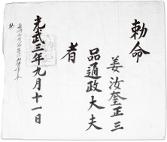 勅命
姜汝奎正三
品通政大夫
者
光武三年九月十一日